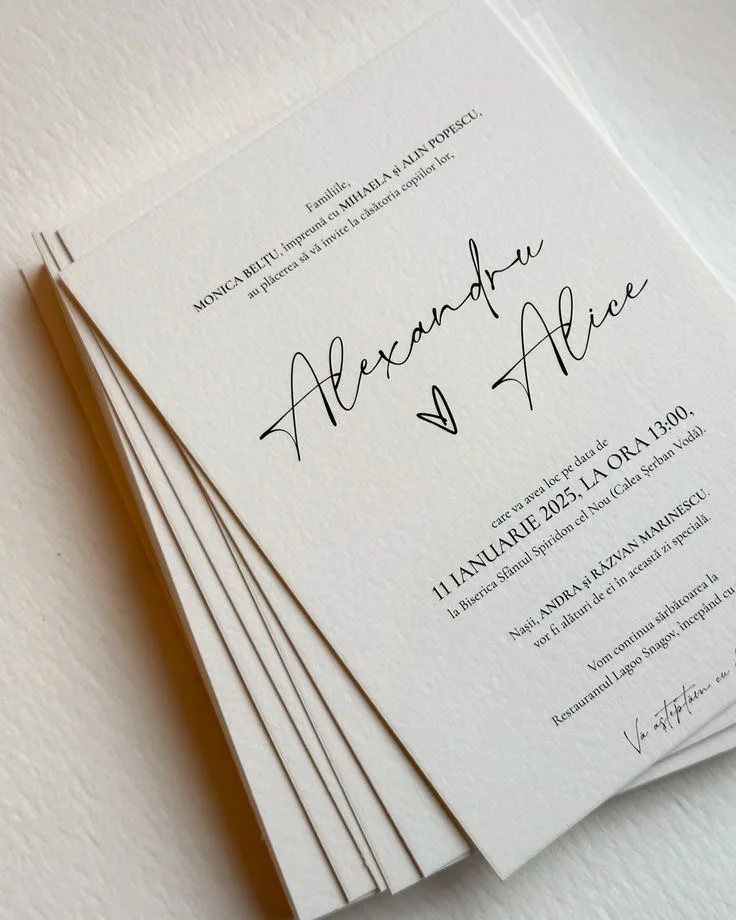 Familiile,
MONICA BELȚU, împreună cu MIHAELA și ALIN POPESCU,
au plăcerea să vă invite la căsătoria copiilor lor,
Alexandru
Alice
care va avea loc pe data de
11 IANUARIE 2025, LA ORA 13:00,
la Biserica Sfântul Spiridon cel Nou (Calea Șerban Vodă).
Nașii, ANDRA și RĂZVAN MARINESCU.
vor fi alături de ei în această zi specială.
Vom continua sărbătoarea la
Restaurantul Lagoo Snagov, începând cu
Vă așteptăm cu